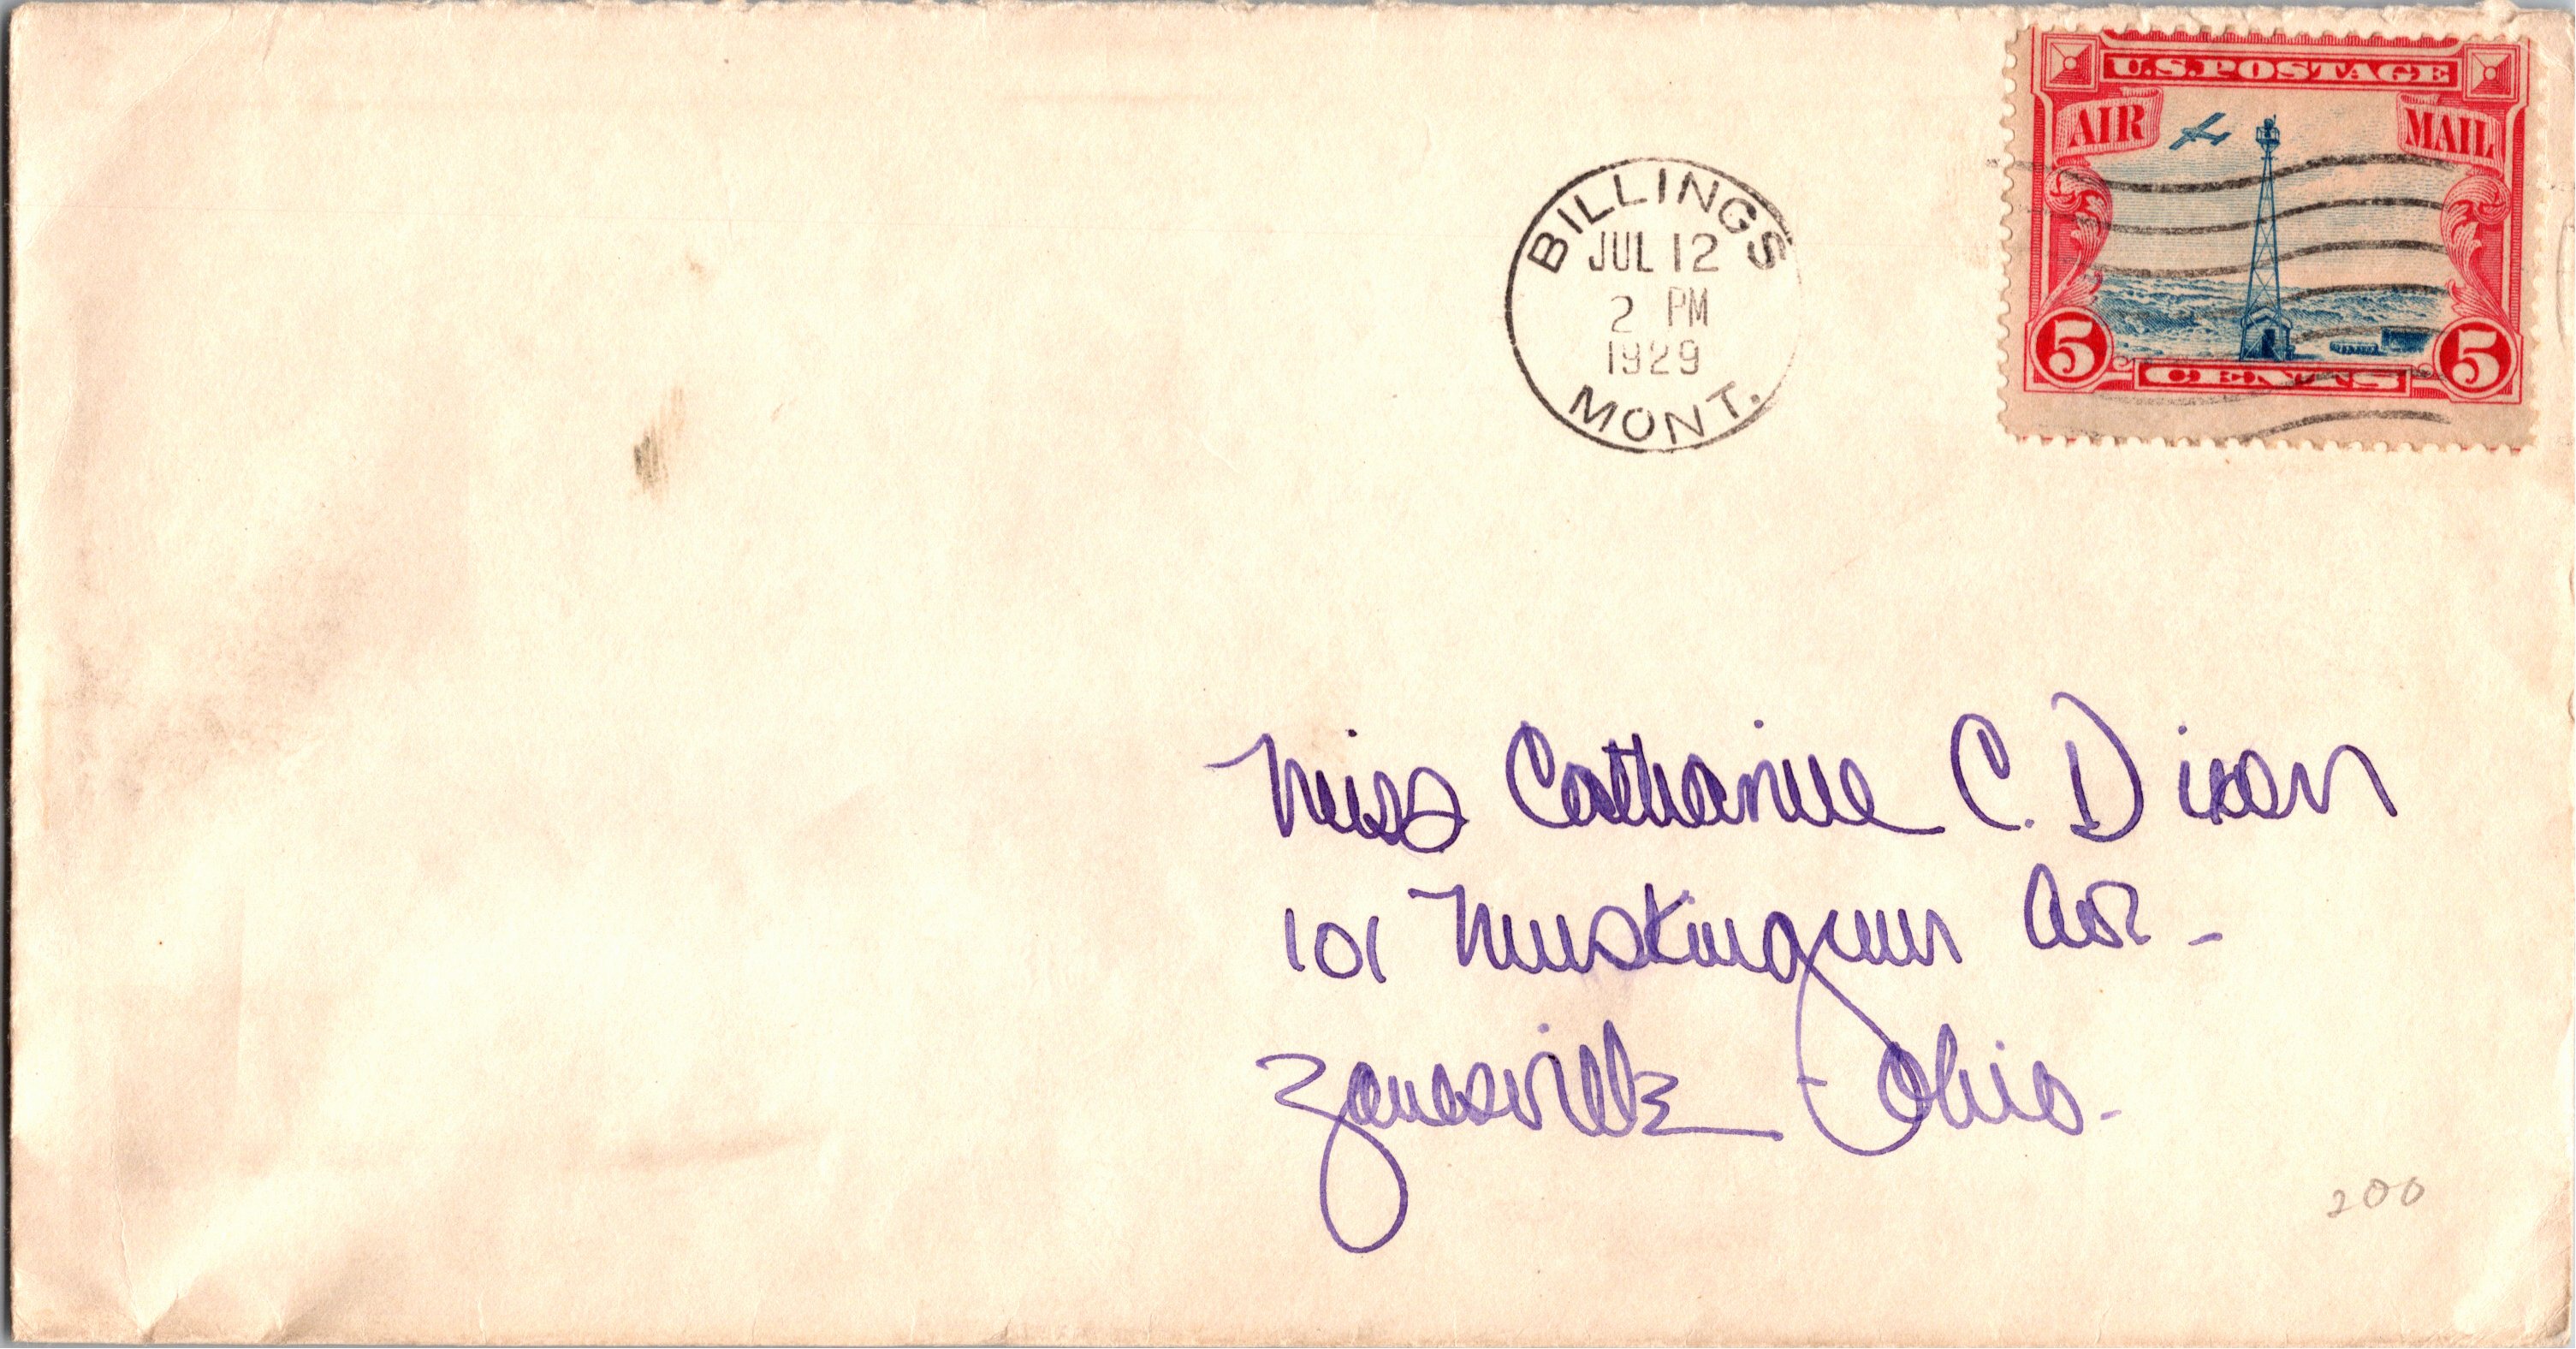 U.S. POSTAGE
AIR MAIL
5 CENTS 5
BILLINGS
JUL 12
2 PM
1929
MONT.
Miss Catharine C. Dixon
101 Muskingum Ave.
Zanesville - Ohio.
200